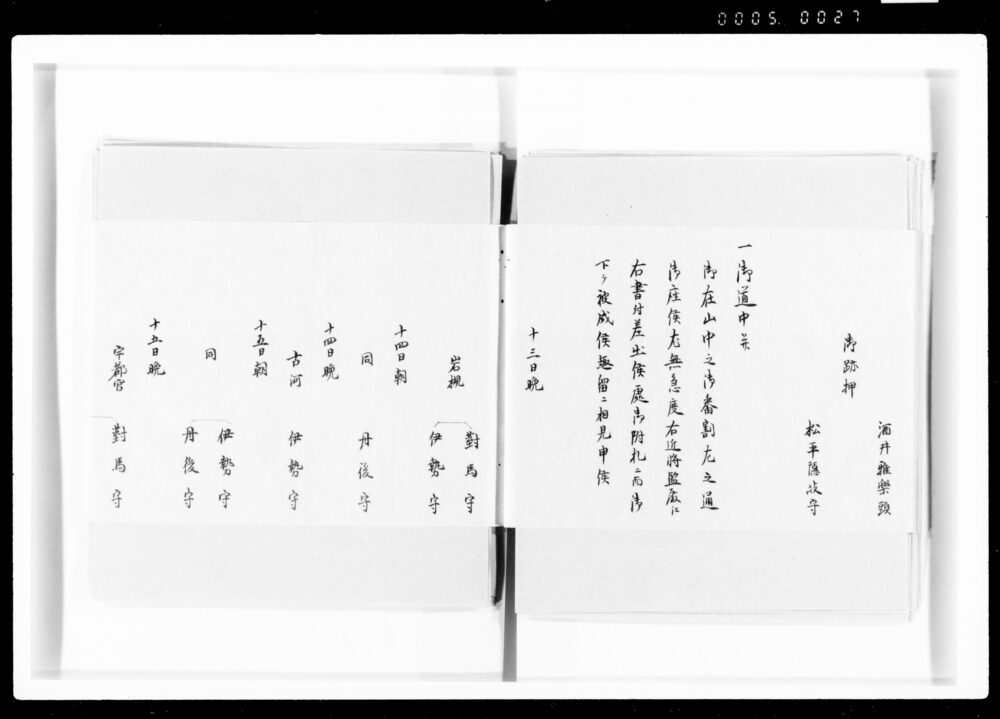 0005.0027
酒井雅樂頭
御跡押
松平隱岐守
一御道中并
御在山中之御番割左之通
御座候尤無急度右近將監殿江
右書付差出候處御附札ニ而御
下ケ被成候趣留ニ相見申候
十三日晩
岩槻 對馬守
伊勢守
十四日朝
同 丹後守
十四日晩
古河 伊勢守
十五日朝
同 伊勢守
丹後守
十五日晩
宇都宮 對馬守